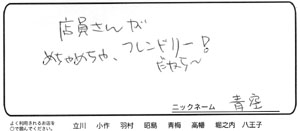 店員さんが
めちゃめちゃ、フレンドリー!
だねっ〜
ニックネーム 青空
よく利用されるお店を
○で囲んでください。 立川 小作 羽村 昭島 青梅 高幡 堀之内 八王子